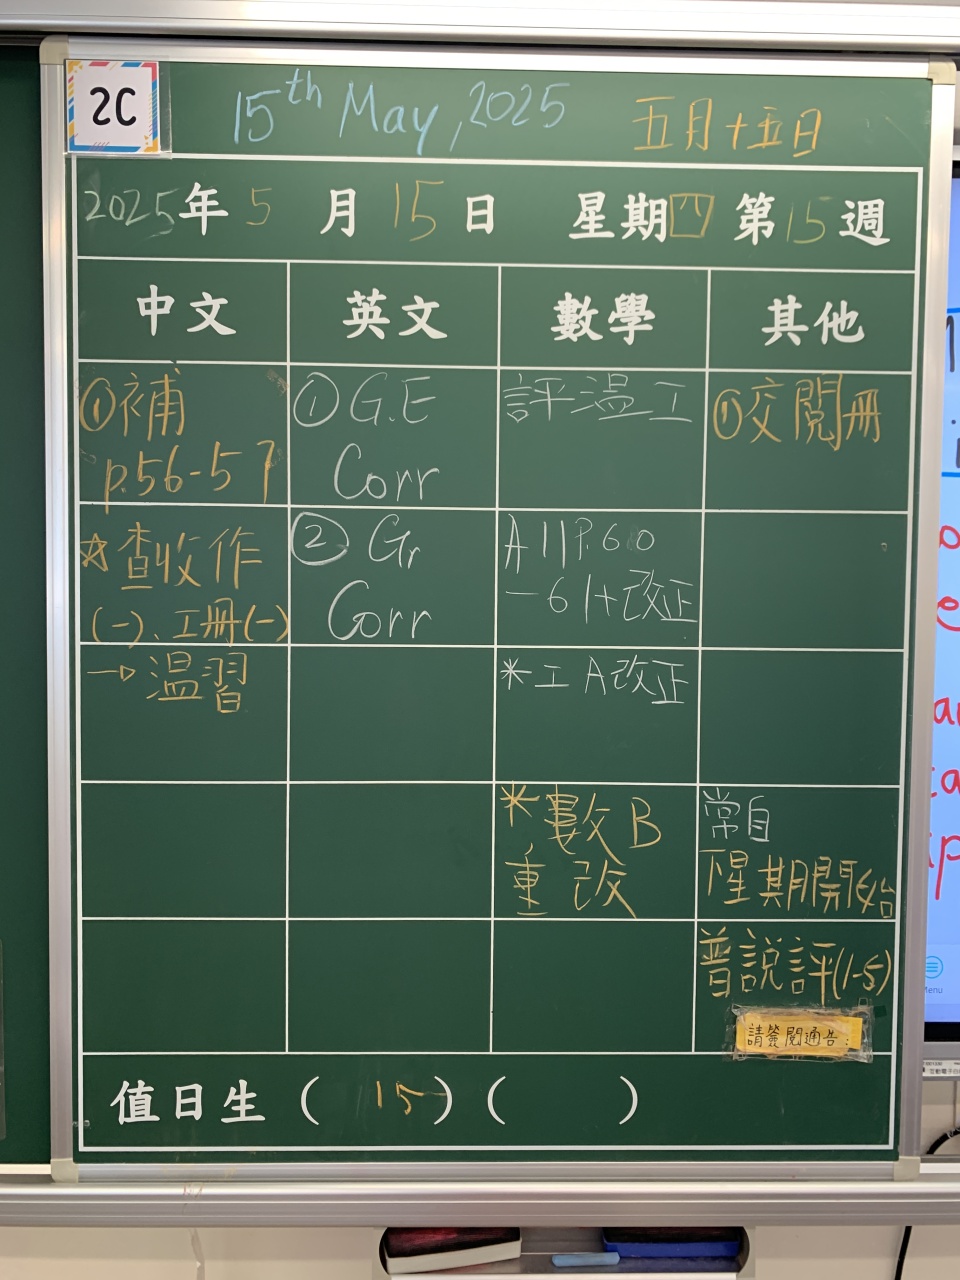 2C
15th May, 2025
五月十五日
2025年5月15日 星期四 第15週
中文 英文 數學 其他
①補
p.56-57
☆查收作
(一)、工冊(一)
→溫習
①G.E
Corr
②Gr
Corr
評溫工
A11P.60
-61+改正
*工A改正
*數B
重改
①交閱冊
常自
下星期開始
普說評(1-5)
請簽閱通告
值日生(15)( )
Menu